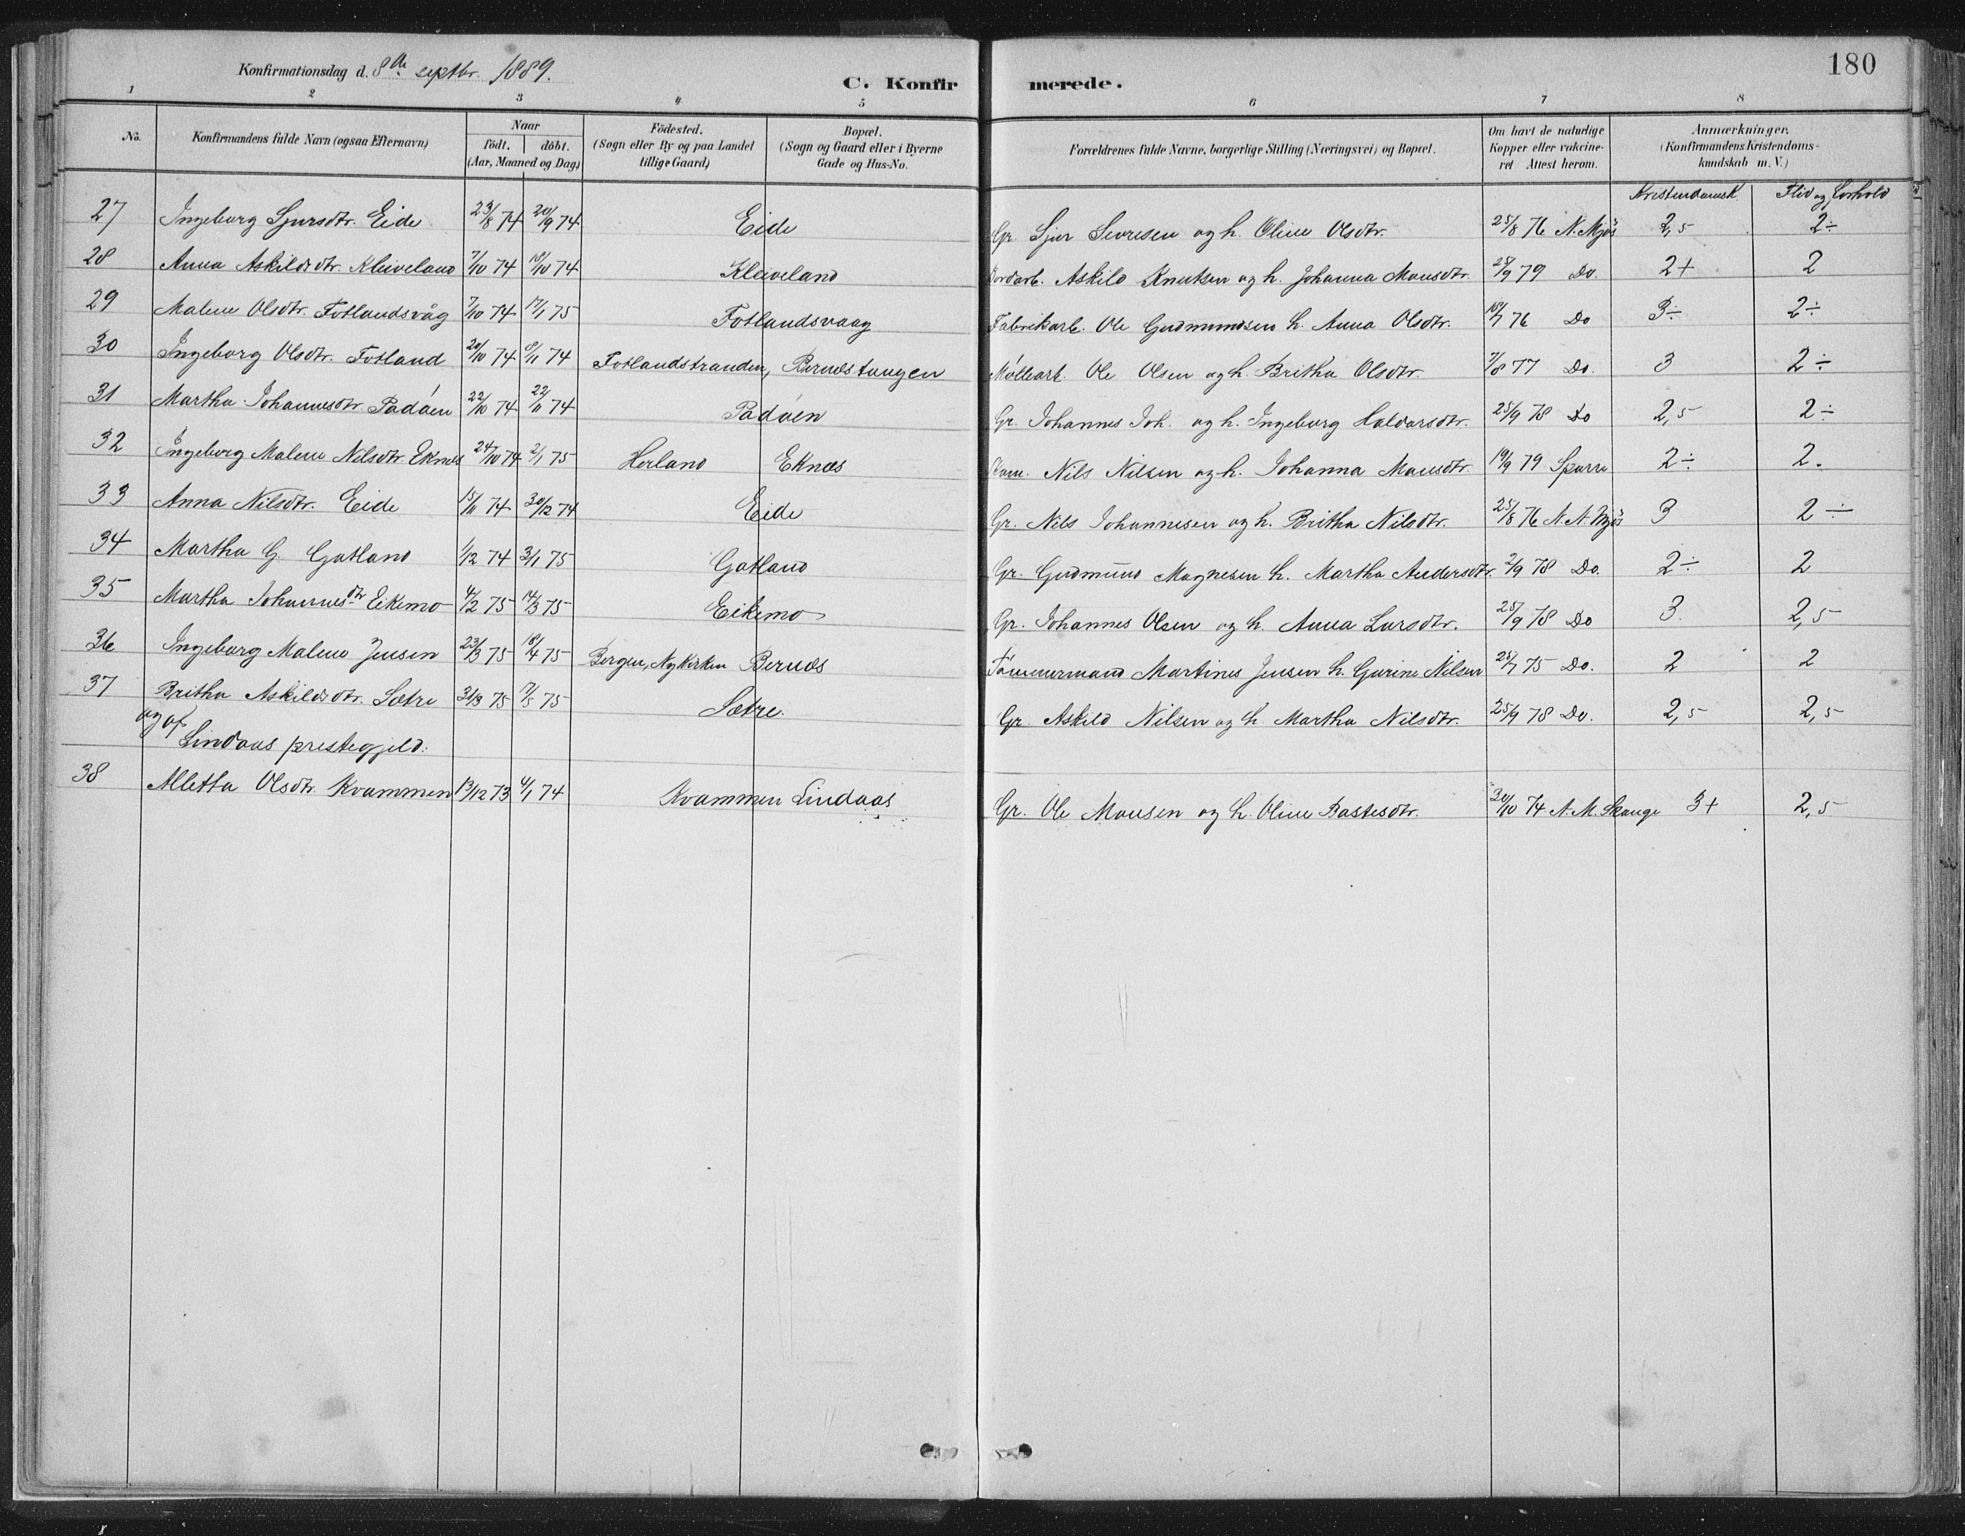 Konfirmationsdag d. 8de septbr. 1889.
C. Konfirmerede.
180
1 2 3 4 5 6 7 8
No. Konfirmandens fulde Navn (ogsaa Efternavn) Naar födt. döbt. (Aar, Maaned og Dag) Födested. (Sogn eller By og paa Landet tillige Gaard) Bopæl. (Sogn og Gaard eller i Byerne Gade og Hus-No. Forældrenes fulde Navne, borgerlige Stilling (Næringsvei) og Bopæl. Om havt de naturlige Kopper eller vakcineret Attest herom. Anmærkninger. (Konfirmandens Kristendomskundskab m. V.)
Kristendomsk. Flid og Forhold
27 Ingeborg Sjursdtr. Eide 23/8 74 20/9 74 Eide Gr. Sjur Sevresen og h. Oline Olsdtr. 25/8 76 N. Mjøs 2,5 2÷
28 Anna Askildsdtr. Kleiveland 7/10 74 18/10 74 Kleiveland Jordarb. Askild Knutsen og h. Johanna Monsdtr. 25/9 79 Do. 2+ 2
29 Malene Olsdtr. Fotlandsvåg 7/10 74 17/1 75 Fotlandsvaag Fabrikarb. Ole Gudmundsen h. Anna Olsdtr. 18/7 76 Do 3÷ 2÷
30 Ingeborg Olsdtr. Fotland 20/10 74 8/11 74 Fotlandstranden, Bernestangen Mølleark. Ole Olsen og h. Britha Olsdtr. 7/8 77 Do. 3 2÷
31 Martha Johannesdtr. Padøen 22/10 74 22/11 74 Padøen Gr. Johannes Joh. og h. Ingeborg Haldorsdtr. 25/9 78 Do 2,5 2÷
32 Ingeborg Malene Nilsdtr. Eknes 24/10 74 2/1 75 Herland Eknæs Nils Nilsen og h. Johanna Monsdtr. 19/9 79 Sparre 2÷ 2.
33 Anna Nilsdtr. Eide 15/11 74 30/12 74 Eide Gr. Nils Johannesen og h. Britha Nilsdtr. 25/8 76 N. N. Mjøs 3 2÷
34 Martha G. Gatland 1/12 74 3/1 75 Gatland Gr. Gudmund Magnesen h. Martha Andersdtr. 2/9 78 Do. 2÷ 2
35 Martha Johannesdtr. Eikemo 4/2 75 14/3 75 Eikemo Gr. Johannes Olsen og h. Anna Larsdtr. 25/9 78 Do 3. 2,5
36 Ingeborg Malene Jensen 23/3 75 18/4 75 Bergen, Nykirken Bernes Tömmermand Martines Jensen h. Gurine Nilsen 25/7 75 Do. 2 2
37 Britha Askildsdtr. Sætre 31/3 75 7/5 75 Sætre. Gr. Askild Nilsen og h. Martha Nilsdtr. 25/9 78 Do. 2,5 2,5
og af Lindaas prestegjeld:
38 Alletta Olsdtr. Kvammen 13/12 73 4/1 74 Kvammen Lindaas Gr. Ole Monsen og h. Oline Bastesdtr. 30/10 74 A. M. Skauge 3+ 2,5